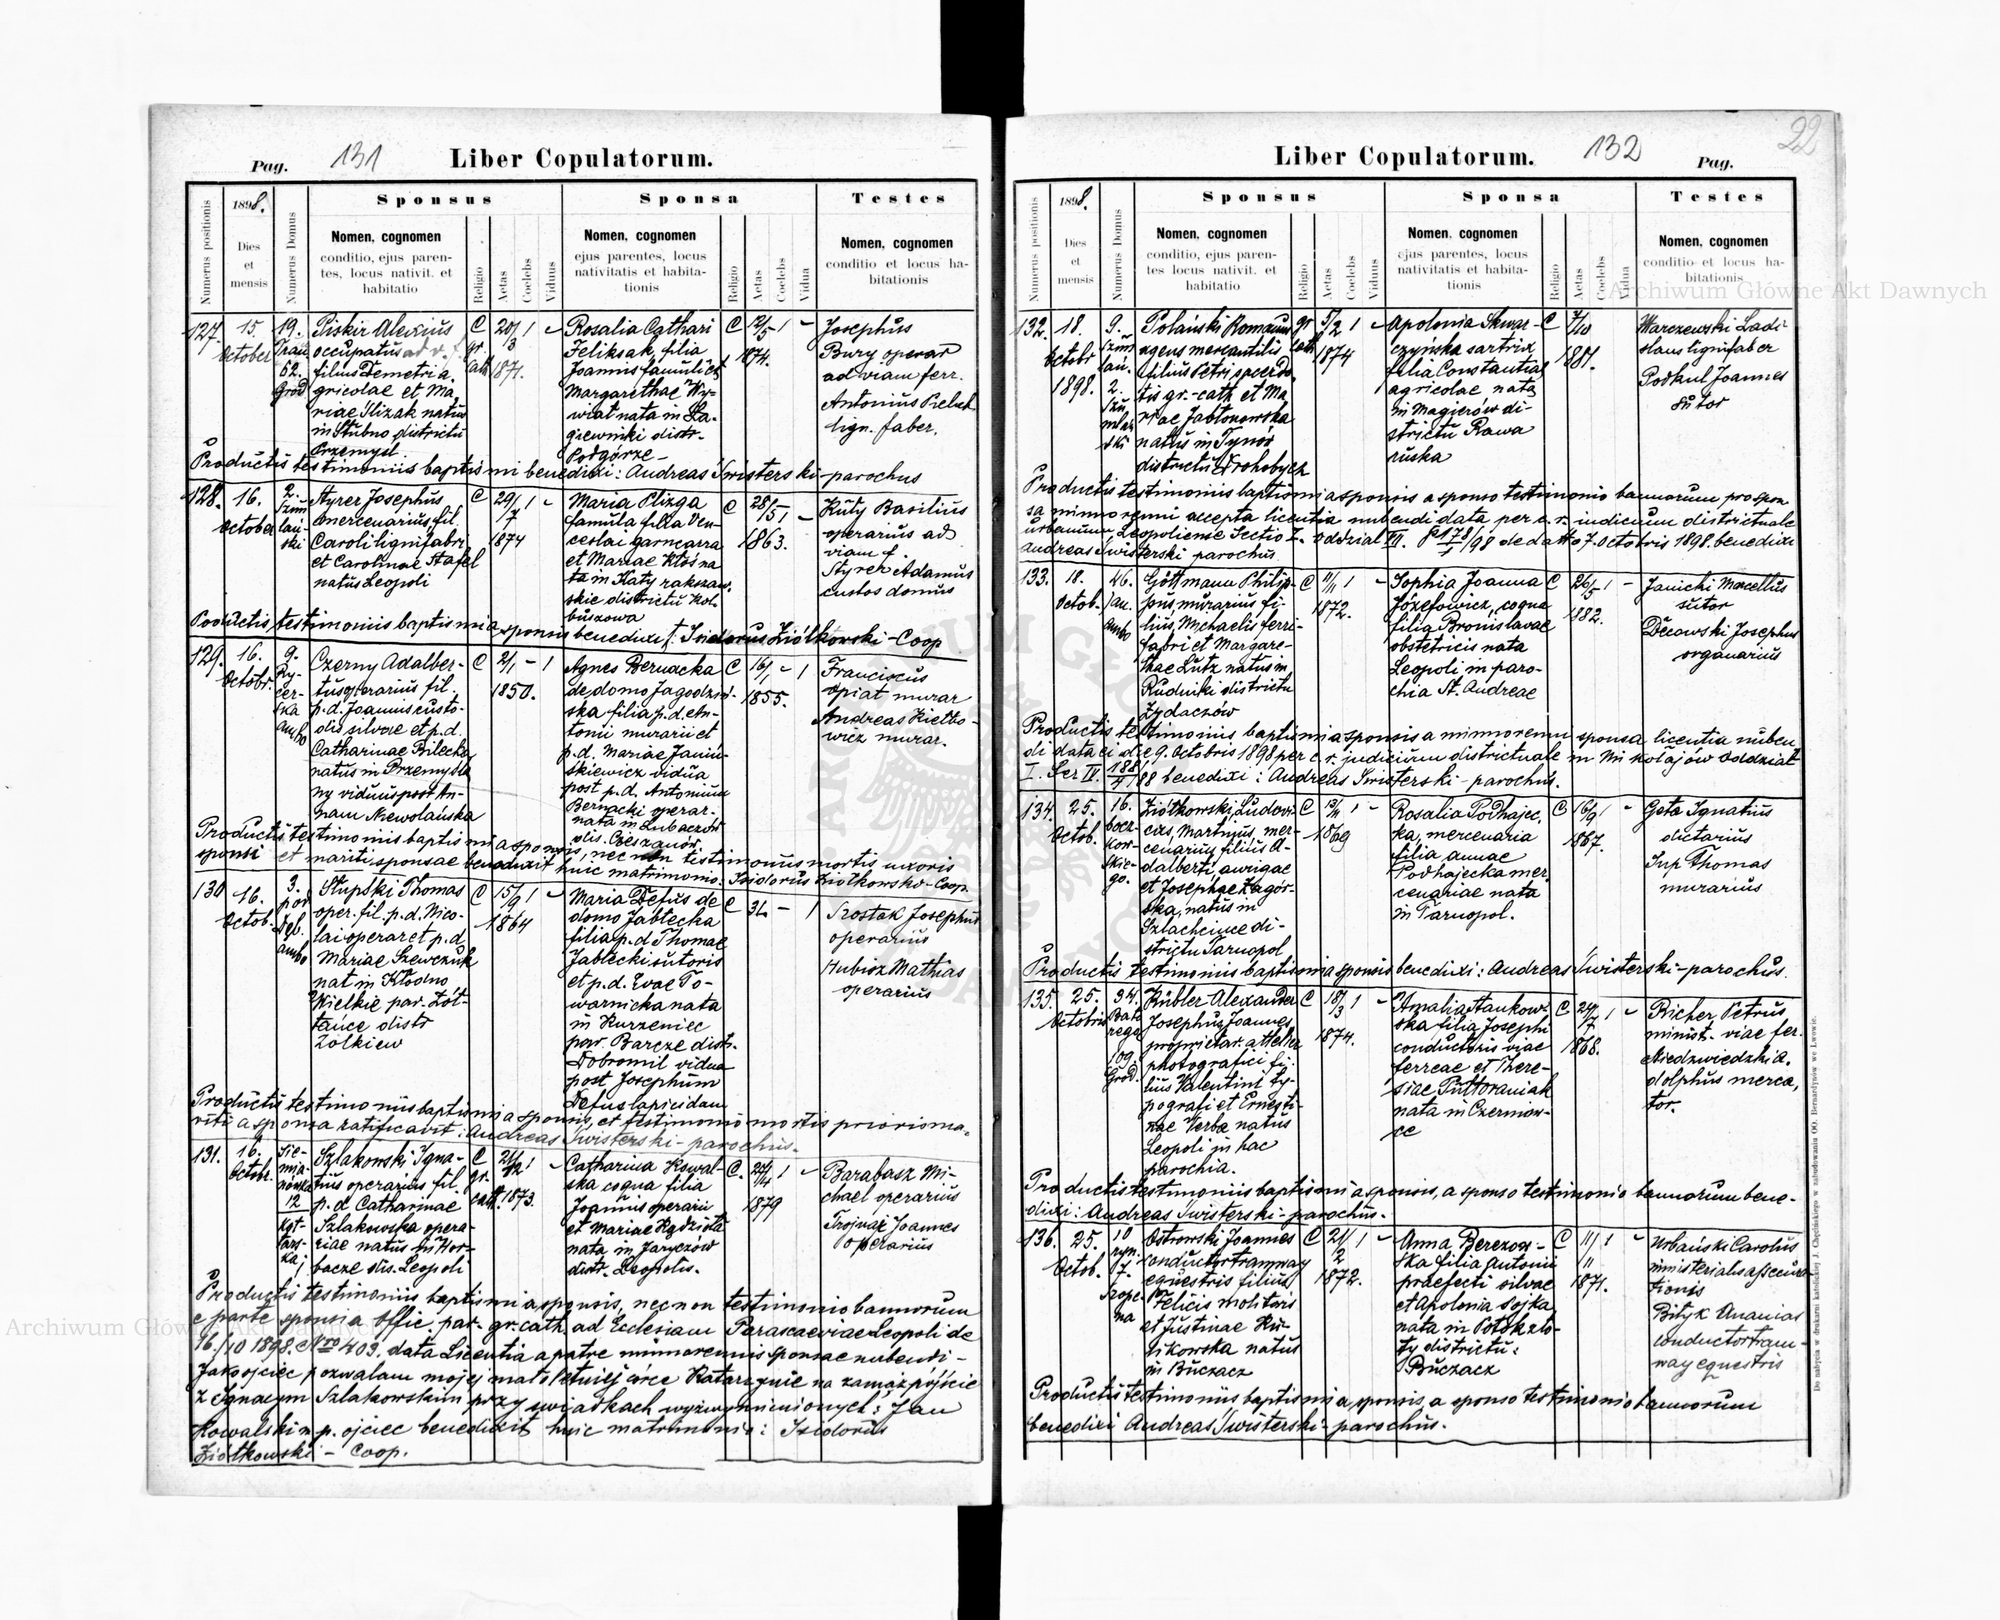 Pag. 131 Liber Copulatorum.
Numerus positionis
1898.
Dies
et
mensis
Numerus Domus
Sponsus
Nomen, cognomen
conditio, ejus paren-
tes, locus nativit. et
habitatio
Religio
Aetas
Coelebs
Viduus
Sponsa
Nomen, cognomen
ejus parentes, locus
nativitatis et habita-
tionis
Religio
Aetas
Coelebs
Vidua
Testes
Nomen, cognomen
conditio et locus ha-
bitationis
127.
15.
October
19.
62.
Grod
Piskir Alexius
occupatus ad v. f.
filius Demetii a
gricolae et Ma
riae Slizak natus
in Stubno districtu
Przemysl.
C
gr.
cath
20/3
1871.
1
Rosalia Cathari
Feliksak, filia
Joannis famuli et
Margarethae Wy-
wiał nata in Ła-
giewniki distr.
Podgórze
C
12/5
1874.
1
Josephus
Bury operar
ad viam ferr.
Antonius Pieluch
lign. faber.
Productis testimoniis baptismi benedixi: Andreas Swisterski - parochus
128.
16.
October
2.
Szum
lań-
ski
Styrer Josephus
mercenarius, fil.
Caroli lignifabri
et Carolinae Stafel
natus Leopoli
C
29/7
1874
1
Maria Plizga
famula filia Ven-
ceslai garncarra
et Mariae Kłós na
ta in Kąty rakszaw-
skie districtu Kol-
buszowa
C
28/5
1863.
1
Kuty Basilius
operarius ad
viam f.
Styrer Adamus
custos domus
Poductis, testimoniis baptismi a sponsis benedixi: Isidorus Ziółkowski - Coop
129.
16.
Octobr.
9.
Ry-
cer-
ska
ambo
Czerny Adalber-
tus operarius fil.
p. d. Joannis custo-
dis silvae et p. d.
Catharinae Bilecka
natus in Przemyśla
ny viduus post An-
nam Niewolańska
C
2/1
1850.
1
Agnes Bernacka
de domo Jagodziń-
ska filia p. d. An-
tonii murarii et
p. d. Mariae Janiu-
skiewicz vidua
post p. d. Antonium
Bernacki operar.
nata in Lubaczów
dis. Cieszanów.
C
16/1
1855.
1
Franciscus
Opiat murar
Andreas Kiełbo-
wicz murar.
Productis testimoniis baptismi a sponsis, nec non testimoniis mortis uxoris
sponsi et mariti sponsae benedixit huic matrimonio: Isidorus Ziółkowski - Coop.
130
16.
Octob.
3.
pod
Dęb.
ambo
Słupski Thomas
oper. fil. p. d. Nico-
lai operar et p. d.
Mariae Szewczuk
nat in Kłodno
Wielkie par. Żół-
tańce distr
Zołkiew
C
15/9
1864
1
Maria Defus de
domo Jabłecka
filia p. d Thomae
Jabłecki sutoris
et p. d. Evae To-
warnicka nata
in Kurzeniec
par. Barcze distr.
Dobromil vidua
post Josephum
Defus lapicidam
C
34
1
Szostak Josephus
operarius
Hubisz Mathias
operarius
Productis testimoniis baptismi a sponsis, et testimonio mortis prioris ma-
riti a sponsa ratificavit: Andreas Swisterski - parochus.
131.
16.
Octobr.
Sie-
mia-
nowska
12
Szlakowski Igna-
tius operarius fil.
p. d. Catharinae
Szlakowska opera-
riae natus in Hor-
bacze dis. Leopoli
C
gr.
cath.
1873.
1
Catharina Kowal-
ska cogna filia
Joannis operarii
et Mariae Kądzioła
nata in Jaryczów
distr. Leopolis.
C.
22/4
1879
1
Barabasz Mi-
chael operarius
Trojnaj Joannes
operarius
Productis testimoniis baptismi a sponsis, nec non testimonio bannorum
e parte sponsi a Offic. par. gr. cath. ad Ecclesiam Parasceviae Leopoli de
16/10 1898. Nro 403. data Licentia a patre minorennis sponsae nubendi -
Jako ojciec pozwalam mojej małoletniej córce Katarzynie na zamążpójście
z Ignacym Szlakowskim przy świadkach wyżwymienionych: Jan
Kowalski m. p. ojciec benedixit huic matrimonio: Isidorus
Ziółkowski - Coop.
Liber Copulatorum. 132 Pag.
22
Numerus positionis
1898.
Dies
et
mensis
Numerus Domus
Sponsus
Nomen, cognomen
conditio, ejus paren-
tes locus nativit. et
habitatio
Religio
Aetas
Coelebs
Viduus
Sponsa
Nomen, cognomen
ejus parentes, locus
nativitatis et habita-
tionis
Religio
Aetas
Coelebs
Vidua
Testes
Nomen, cognomen
conditio et locus ha-
bitationis
132.
18.
Octobr
1898.
9.
Szum
lań.
2.
Polański Romanus
agens mercantilis
filius Petri sacerdo-
tis gr.-cath et Ma
riae Jabłonowska
natus in Tynów
districtu Drohobycz
gr
cath
5/2
1874
1
Apolonia Skwar-
czyńska sartrix
filia Constantiae
agricolae nata
in Magierów di-
strictu Rawa
ruska
C
7/10
1881.
Warczewski Ladi-
slaus lignifaber
Podkul Joannes
sutor
Productis testimoniis baptismi a sponsis a sponso testimonio bannorum pro spon
sa minorenni accepta licentia nubendi data per c. r. iudicium districtuale
urbanum, Leopoliense Sectio I. oddział III. P 178/1/98 de datto 7. Octobris 1898. benedixi
Andreas Swisterski parochus
133.
18.
Octob.
46.
Jan.
ambo
Göttmann Philip-
pus, murarius fi-
lius, Michaelis ferri-
fabri et Margare-
thae Lutz natus in
Rudniki districtu
Żydaczów
C
11/11
1872.
1
Sophia Joanna
Józefowicz, cogna
filia Bronislavae
obstetricis nata
Leopoli in paro-
chia St. Andreae
C
26/5
1882.
1
Janicki Marcellus
sutor
Decowski Josephus
organarius
Productis testimoniis baptismi a sponsis a minorenni sponsa licentia nuben
di data ei die 9. Octobris 1898 per c. r. judicium districtuale in Mikołajów oddział
I. Ser IV. benedixi: Andreas Swisterski - parochus.
134.
25.
Octob.
16.
bocz-
kow-
skie-
go.
Ziółkowski Ludovi-
cus, Martinus, mer-
cenarius filius A-
dalberti, aurigae
et Josephae Zagór-
ska, natus in
Szlachcince di-
strictu Tarnopol
C
13/11
1869
1
Rosalia Podhajec-
ka, mercenaria
filia annae
Podhajecka mer-
cenariae nata
in Tarnopol.
C
16/9
1867.
1
Geto Ignatius
dietarius
Sup Thomas
murarius
Productis testimoniis baptismi a sponsis benedixi: Andreas Swisterski - parochus.
135.
25.
Octobris
34.
Bato
rego
109.
Grod.
Kübler Alexander
Josephus Joannes
proprietar. attelier
photografici fi-
lius Valentini ty-
pografi et Ernesti-
nae Verbe natus
Leopoli in hac
parochia.
C
18/3
1874.
1
Amalia Stankow-
ska filia Josephi
conductoris viae
ferreae et There-
siae Puttoraniak
nata in Czernow-
ce
C
24/7
1868.
1
Richer Petrus
minist. viae fer.
Niedzwiedzki A-
dolphus merca-
tor.
Productis testimoniis baptismi a sponsis, a sponso testimonio bannorum bene-
dixi: Andreas Swisterski - parochus.
136.
25.
Octob.
10
ryn.
17.
Ostrowski Joannes
conductor tramway
equestris filius
Felicis molitoris
et Justinae Ku-
sikowska natus
in Buczacz
C
21/2
1872.
1
Anna Berezow-
ska filia Antonii
praefecti silvae
et Apolonia Sojka
nata in Potok zło-
ty districtu:
Buczacz
C
11/11
1871.
1
Urbański Carolus
ministerialis assecura-
tionis
Bityk Ananias
conductor tram-
way equestris
Productis testimoniis baptismi a sponsis, a sponso testimonio bannorum
benedixi Andreas Swisterski - parochus.
Do nabycia w drukarni katolickiej J. Chęcińskiego w zabudowaniu OO. Bernardynów we Lwowie.
Archiwum Główne Akt Dawnych
Archiwum Główne Akt Dawnych